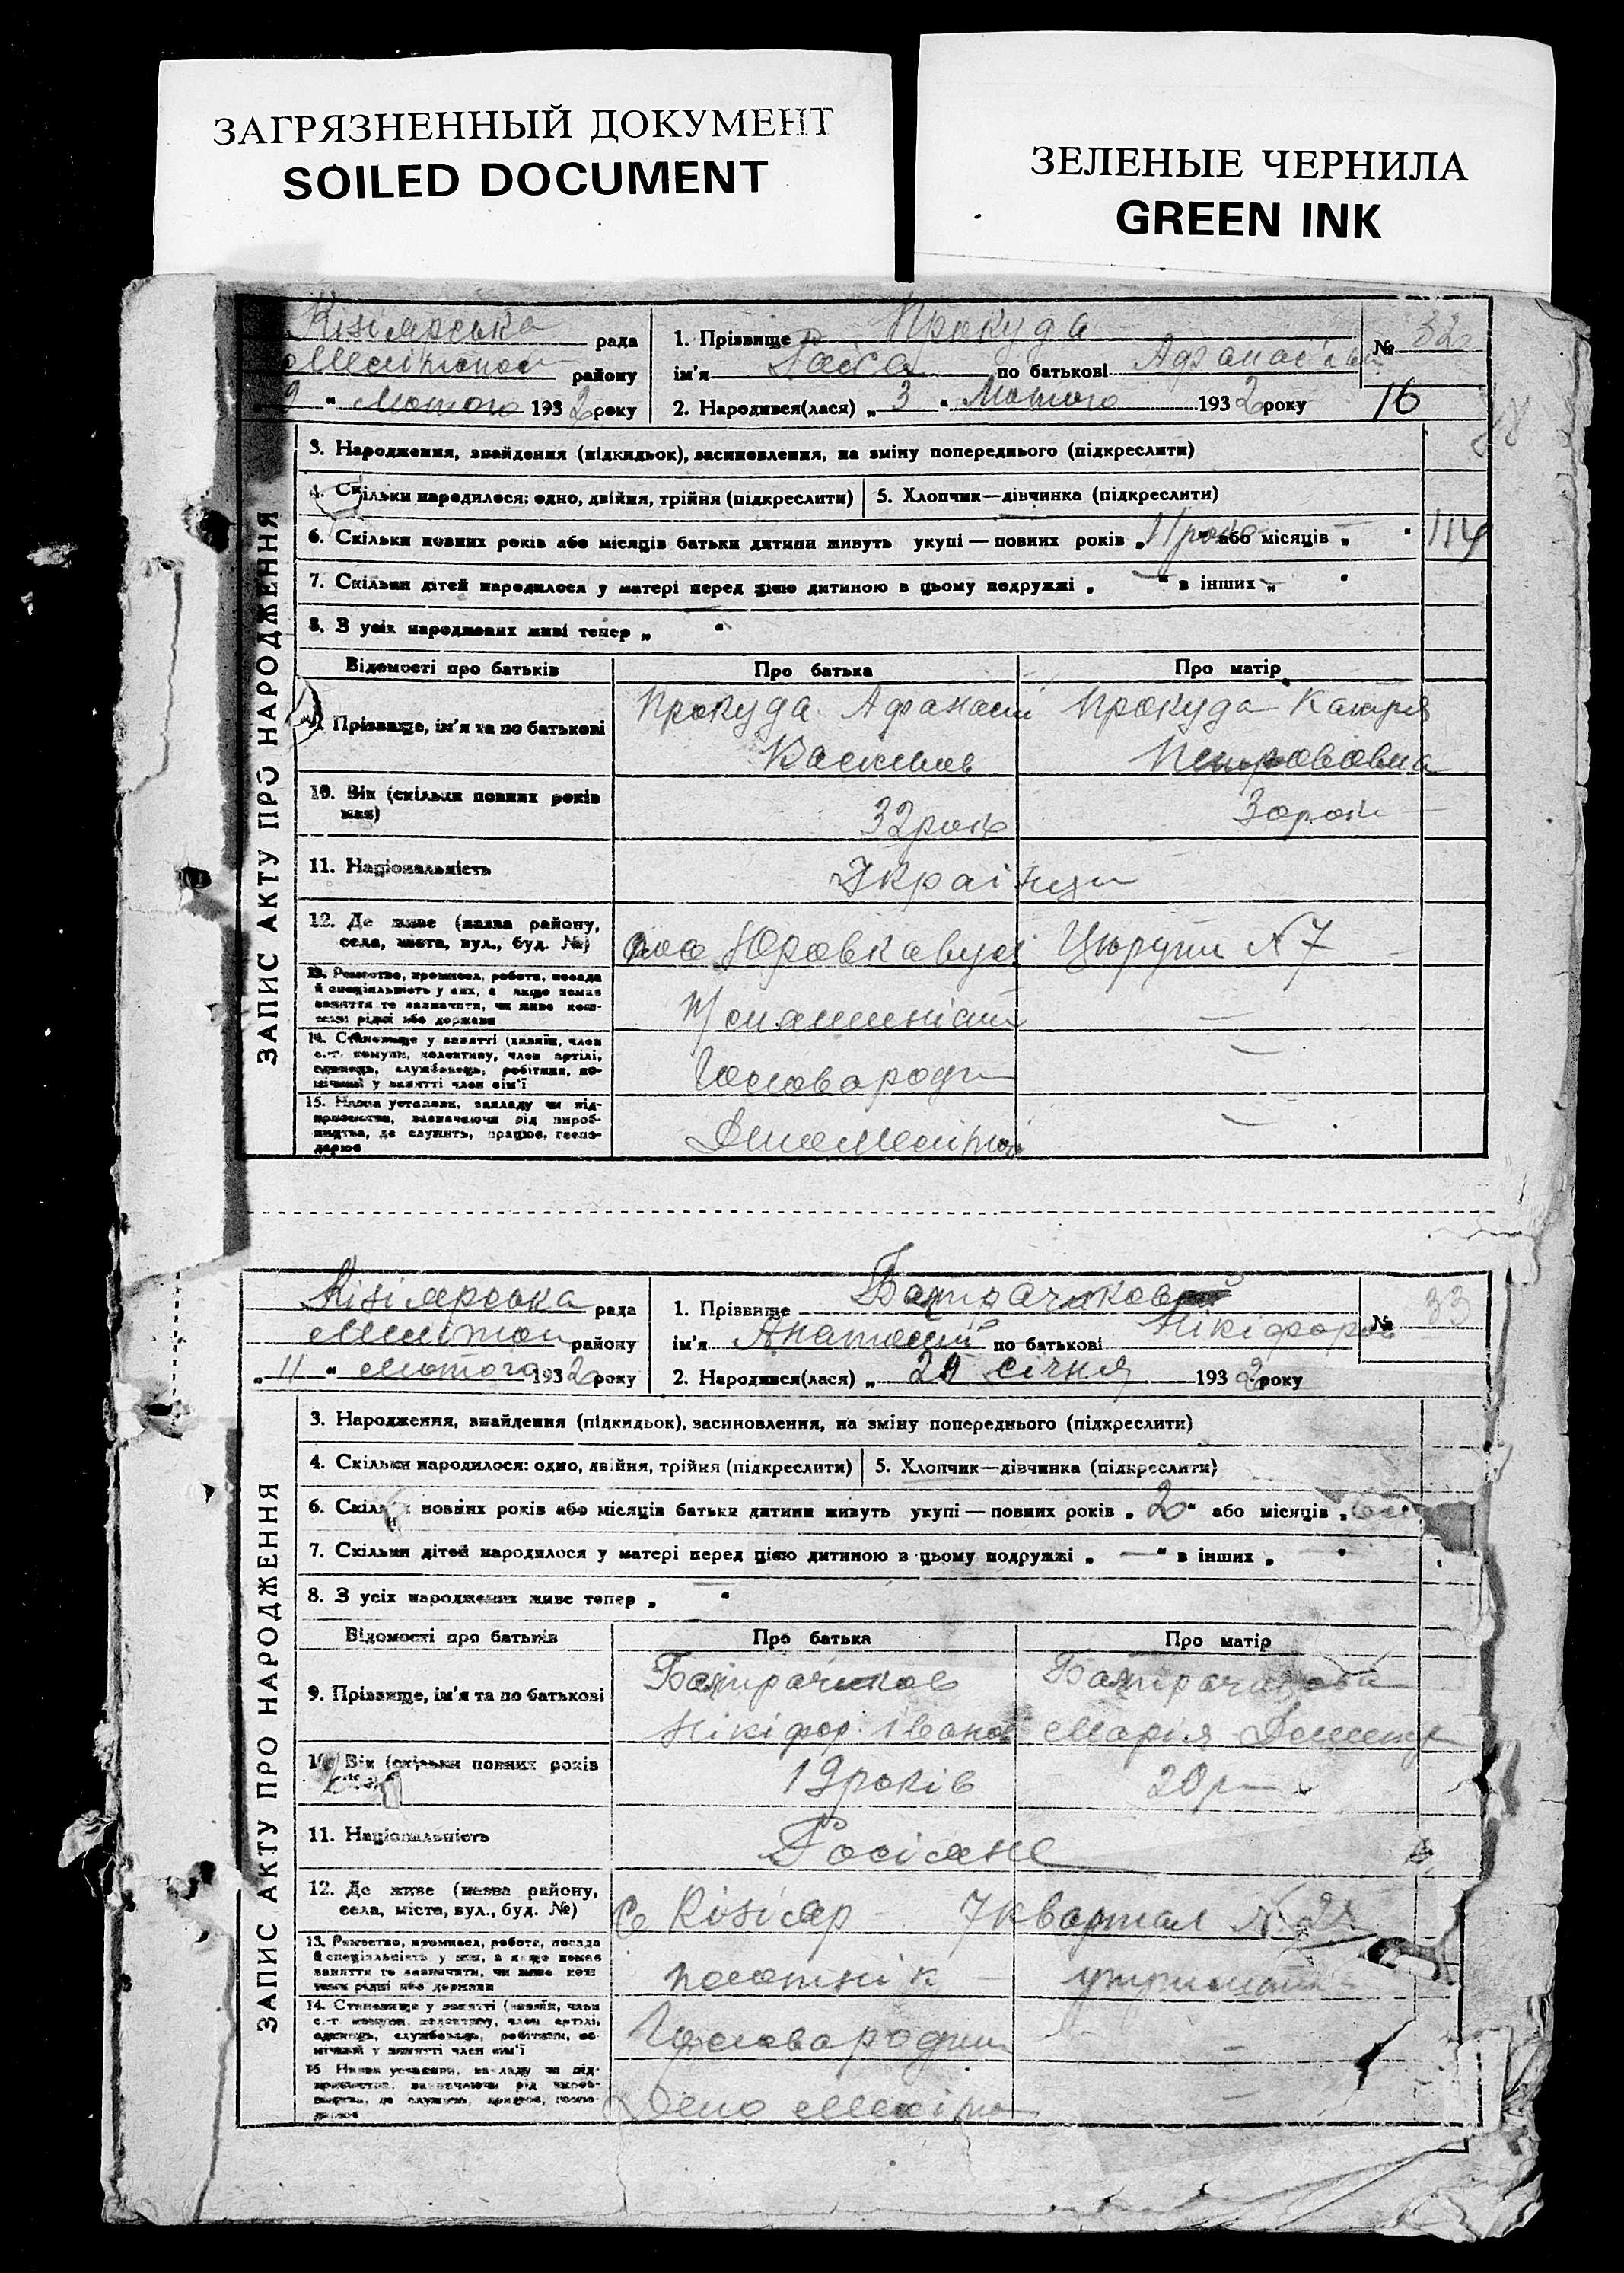 ЗАГРЯЗНЕННЫЙ ДОКУМЕНТ
SOILED DOCUMENT
ЗЕЛЕНЫЕ ЧЕРНИЛА
GREEN INK
ЗАПИС АКТУ ПРО НАРОДЖЕННЯ
Кізіярська рада
Меліtопол району
9 " Лютого 1932 року
1. Прізвище Прокуда
ім'я Раїса по батькові Афанасі
2. Народився(лася) „ 3 " Лютого 1932 року
№ 32
16
3. Народження, знайдення (підкидьок), засиновлення, на зміну попереднього (підкреслити)
4. Скільки народилося: одно, двійня, трійня (підкреслити)
5. Хлопчик—дівчинка (підкреслити)
6. Скільки повних років або місяців батьки дитини живуть укупі — повних років „ 11 років " або місяців „ "
114
7. Скільки дітей народилося у матері перед цією дитиною в цьому подружжі „ — " в інших „ — "
8. З усіх народжених живі тепер „ "
Відомості про батьків Про батька Про матір
9. Прізвище, ім'я та по батькові
Прокуда Афанасій
Васильов
Прокуда Катря
Петрововна
10. Вік (скільки повних років має)
32 рок
30 рок
11. Національність
Українци
12. Де живе (назва району,
села, міста, вул., буд. №)
Юровка вул Цюрупи N 7
13. Ремество, промисел, робота, посада
й спеціяльність у них, а якщо немає
заняття то зазначити, чи живе кош-
тами рідні або держави
—
14. Становище у занятті (хазяїн, член
с.-г. комуни, колективу, член артілі,
одинець, службовець, робітник, по-
мічний у занятті член сім'ї
—
15. Назва установи, закладу чи під-
приємства, зазначаючи рід вироб-
ництва, де служить, працює, госпо-
дарює
Депо Меліtоп
—
ЗАПИС АКТУ ПРО НАРОДЖЕННЯ
Кізіярська рада
Меліtоп району
„ 11 " Лютого 1932 року
1. Прізвище Батрачиков
ім'я Анатолій по батькові Нікіфоров
2. Народився(лася) „ 29 січня 1932 року
№ 33
3. Народження, знайдення (підкидьок), засиновлення, на зміну попереднього (підкреслити)
4. Скільки народилося: одно, двійня, трійня (підкреслити)
5. Хлопчик—дівчинка (підкреслити)
6. Скільки повних років або місяців батьки дитини живуть укупі — повних років „ 2 " або місяців „
7. Скільки дітей народилося у матері перед цією дитиною в цьому подружжі „ — " в інших „ "
8. З усіх народжених живе тепер „ "
Відомості про батьків Про батька Про матір
9. Прізвище, ім'я та по батькові
Батрачиков
Нікіфор Іванов
Батрачикова
Марія
10. Вік (скільки повних років має)
19 років
20 р
11. Національність
Росіяне
12. Де живе (назва району,
села, міста, вул., буд. №)
с Кізіяр 7 квартал N
13. Ремество, промисел, робота, посада
й спеціяльність у них, а якщо немає
заняття то зазначити, чи живе кош-
тами рідні або держави
14. Становище у занятті (хазяїн, член
с.-г. комуни, колективу, член артілі,
одинець, службовець, робітник, по-
мічний у занятті член сім'ї
—
15. Назва установи, закладу чи під-
приємства, зазначаючи рід вироб-
ництва, де служить, працює, госпо-
дарює
Депо Меліtо
—